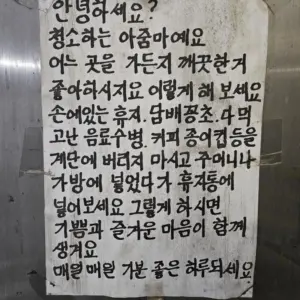 안녕하세요?
청소하는 아줌마예요
어느 곳을 가든지 깨끗한거
좋아하시지요 이렇게 해 보세요
손에있는 휴지. 담배꽁초. 다 먹
고난 음료수병. 커피 종이컵등을
계단에 버리지 마시고 주머니나
가방에 넣었다가 휴지통에
넣어보세요 그렇게 하시면
기쁨과 즐거운 마음이 함께
생겨요
매일매일 기분 좋은 하루되세요